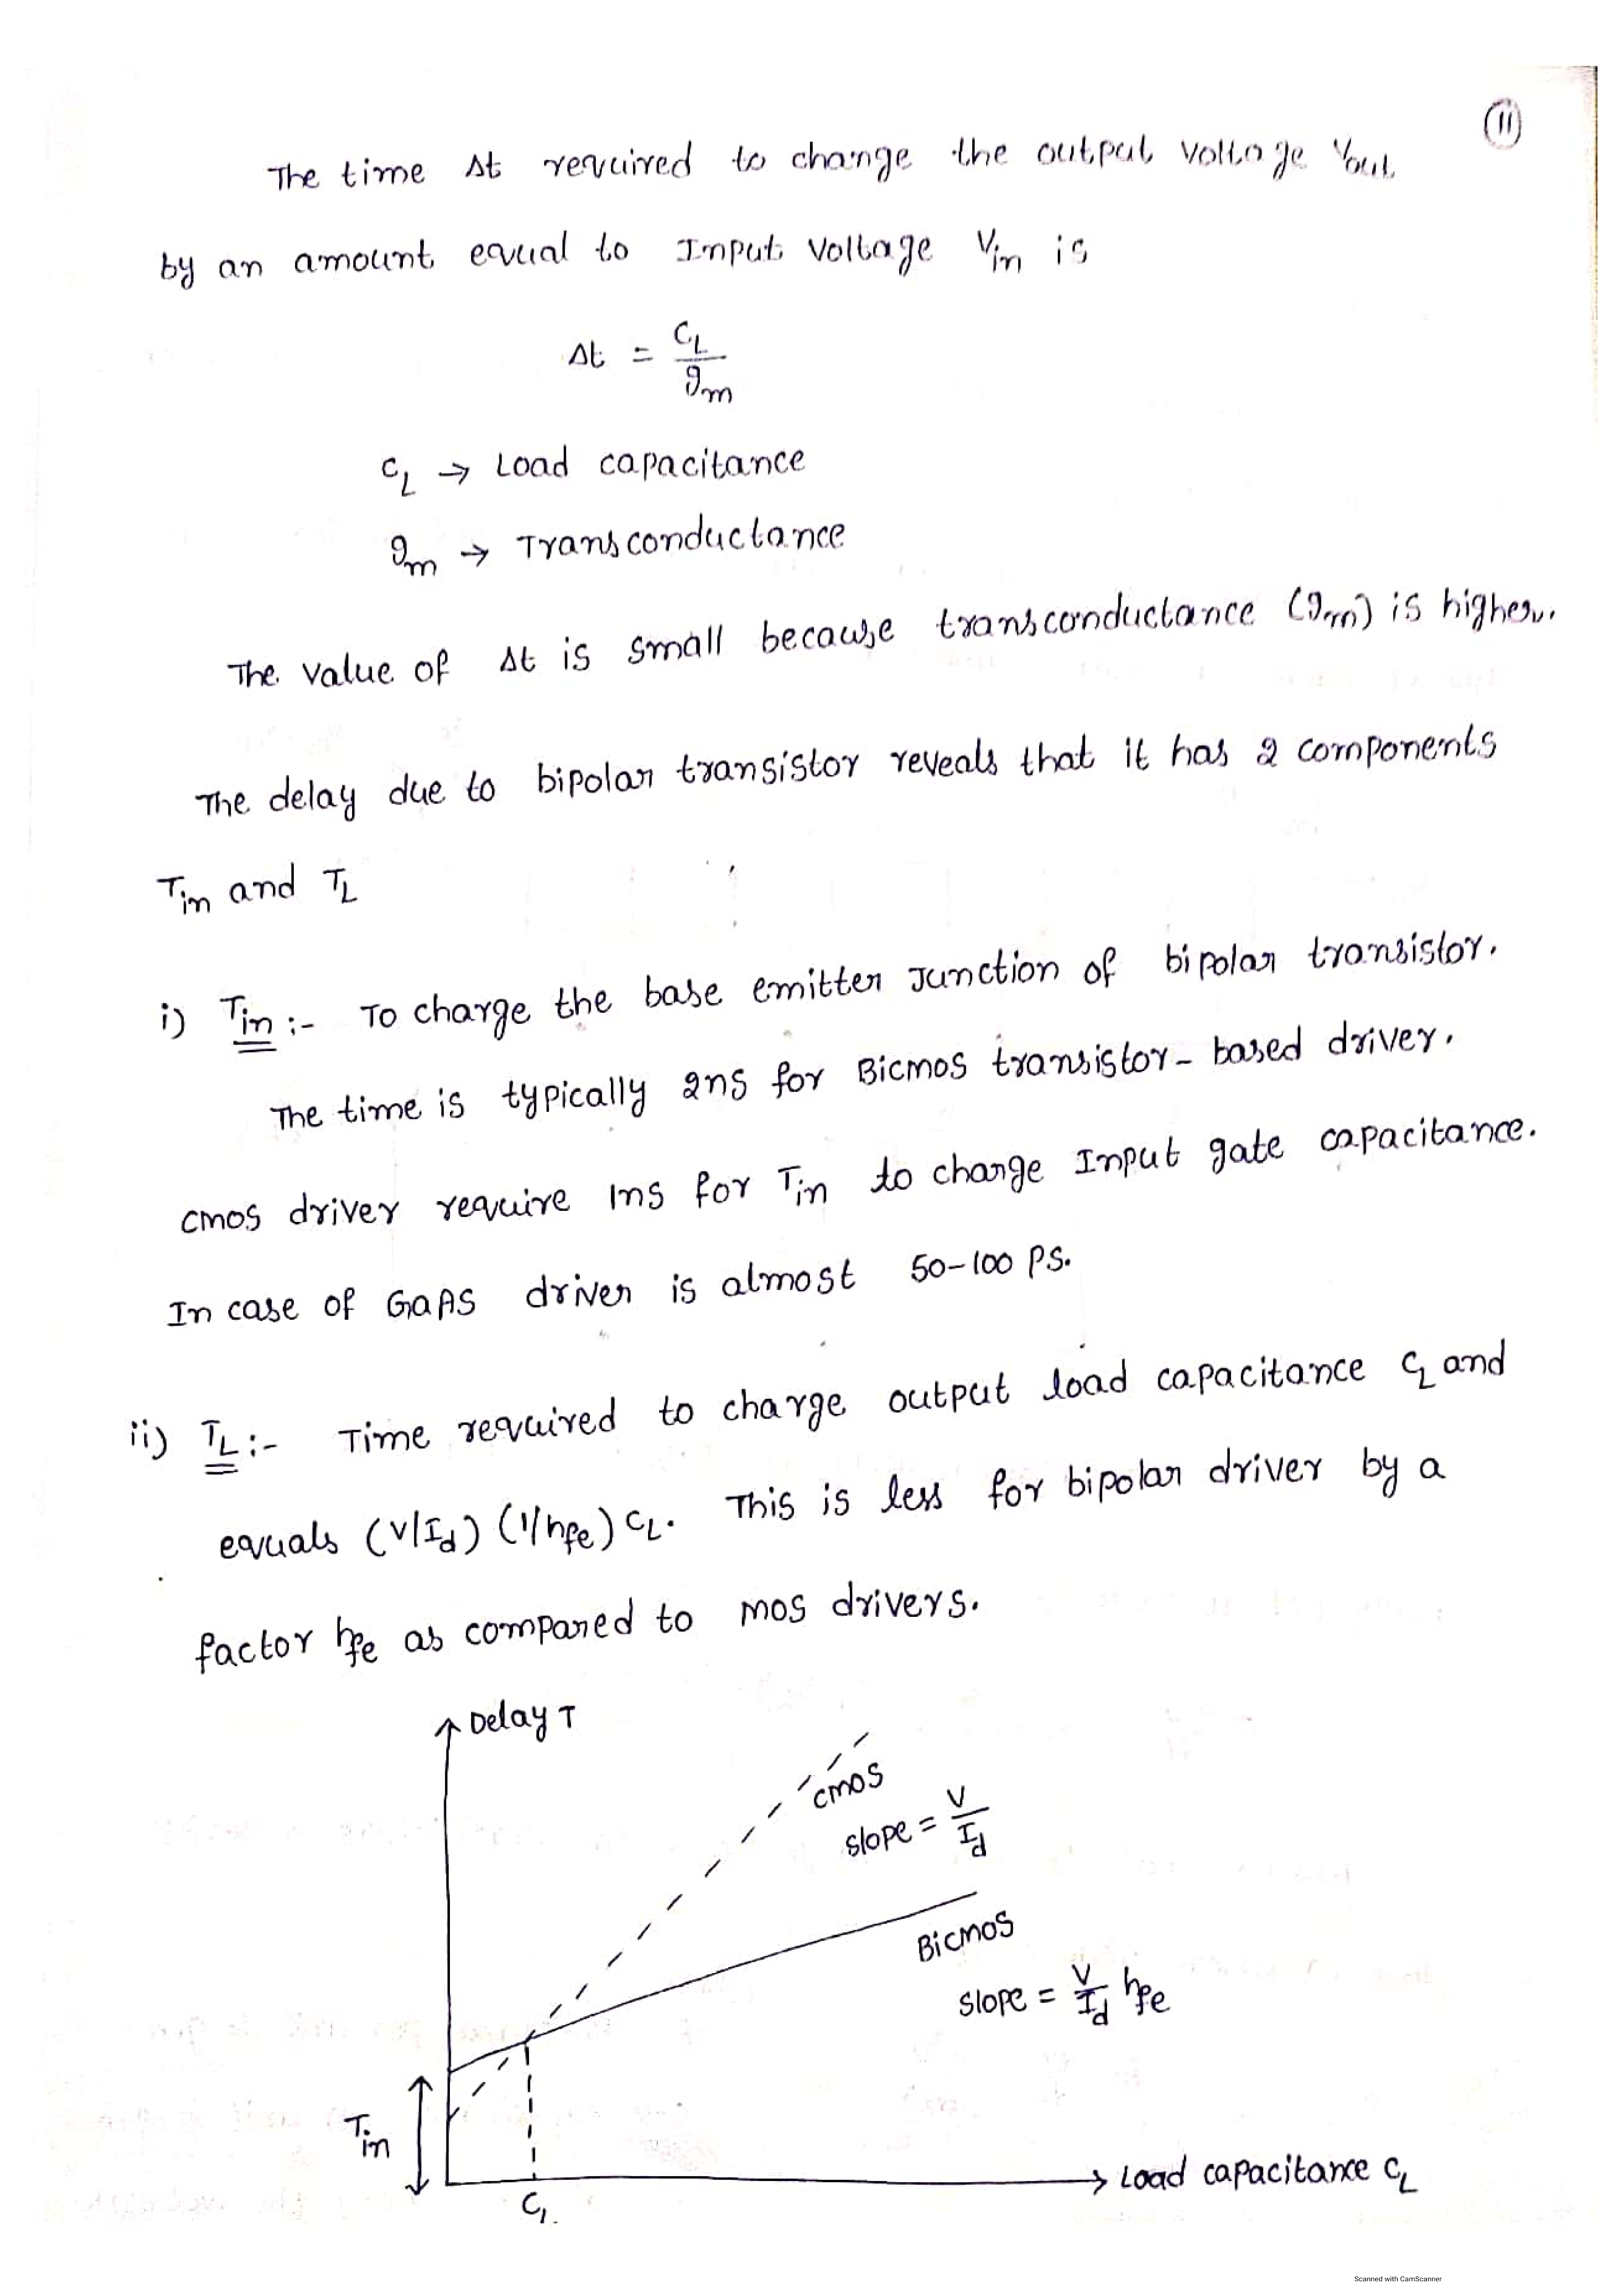 11
The time Δt required to change the output voltage Vout
by an amount equal to Input Voltage Vin is
Δt = CL/gm
CL → Load capacitance
gm → Transconductance
The value of Δt is small because transconductance (gm) is higher.
The delay due to bipolar transistor reveals that it has 2 components
Tin and TL
i) Tin :- To charge the base emitter Junction of bipolar transistor.
The time is typically 2ns for Bicmos transistor-based driver.
cmos driver require 1ns for Tin to change Input gate capacitance.
In case of GaAs driver is almost 50-100 ps.
ii) TL :- Time required to charge output load capacitance CL and
equals (V/Id) (1/hfe) CL. This is less for bipolar driver by a
factor hfe as compared to mos drivers.
Delay T
cmos
slope = V/Id
Bicmos
slope = V/Id hfe
Tin
C1
Load capacitance CL
Scanned with CamScanner